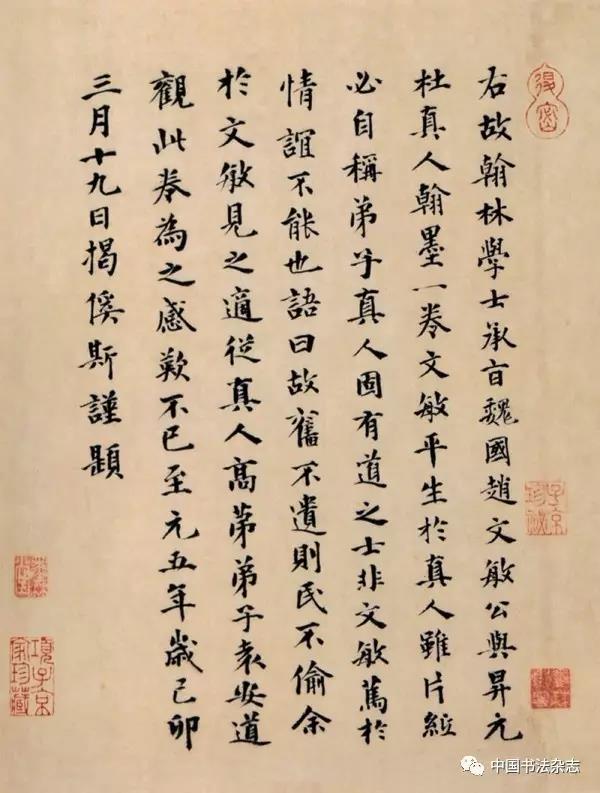 右故翰林學士承旨魏國趙文敏公與昇元
杜真人翰墨一卷文敏平生於真人雖片紙
必自稱弟子真人固有道之士非文敏篤於
情誼不能也語曰故舊不遺則民不偷余
於文敏見之適從真人高弟弟子袁安道
觀此卷為之感歎不已至元五年歲己卯
三月十九日揭傒斯謹題
項子京
家珍藏
子京
珍秘
中国书法杂志